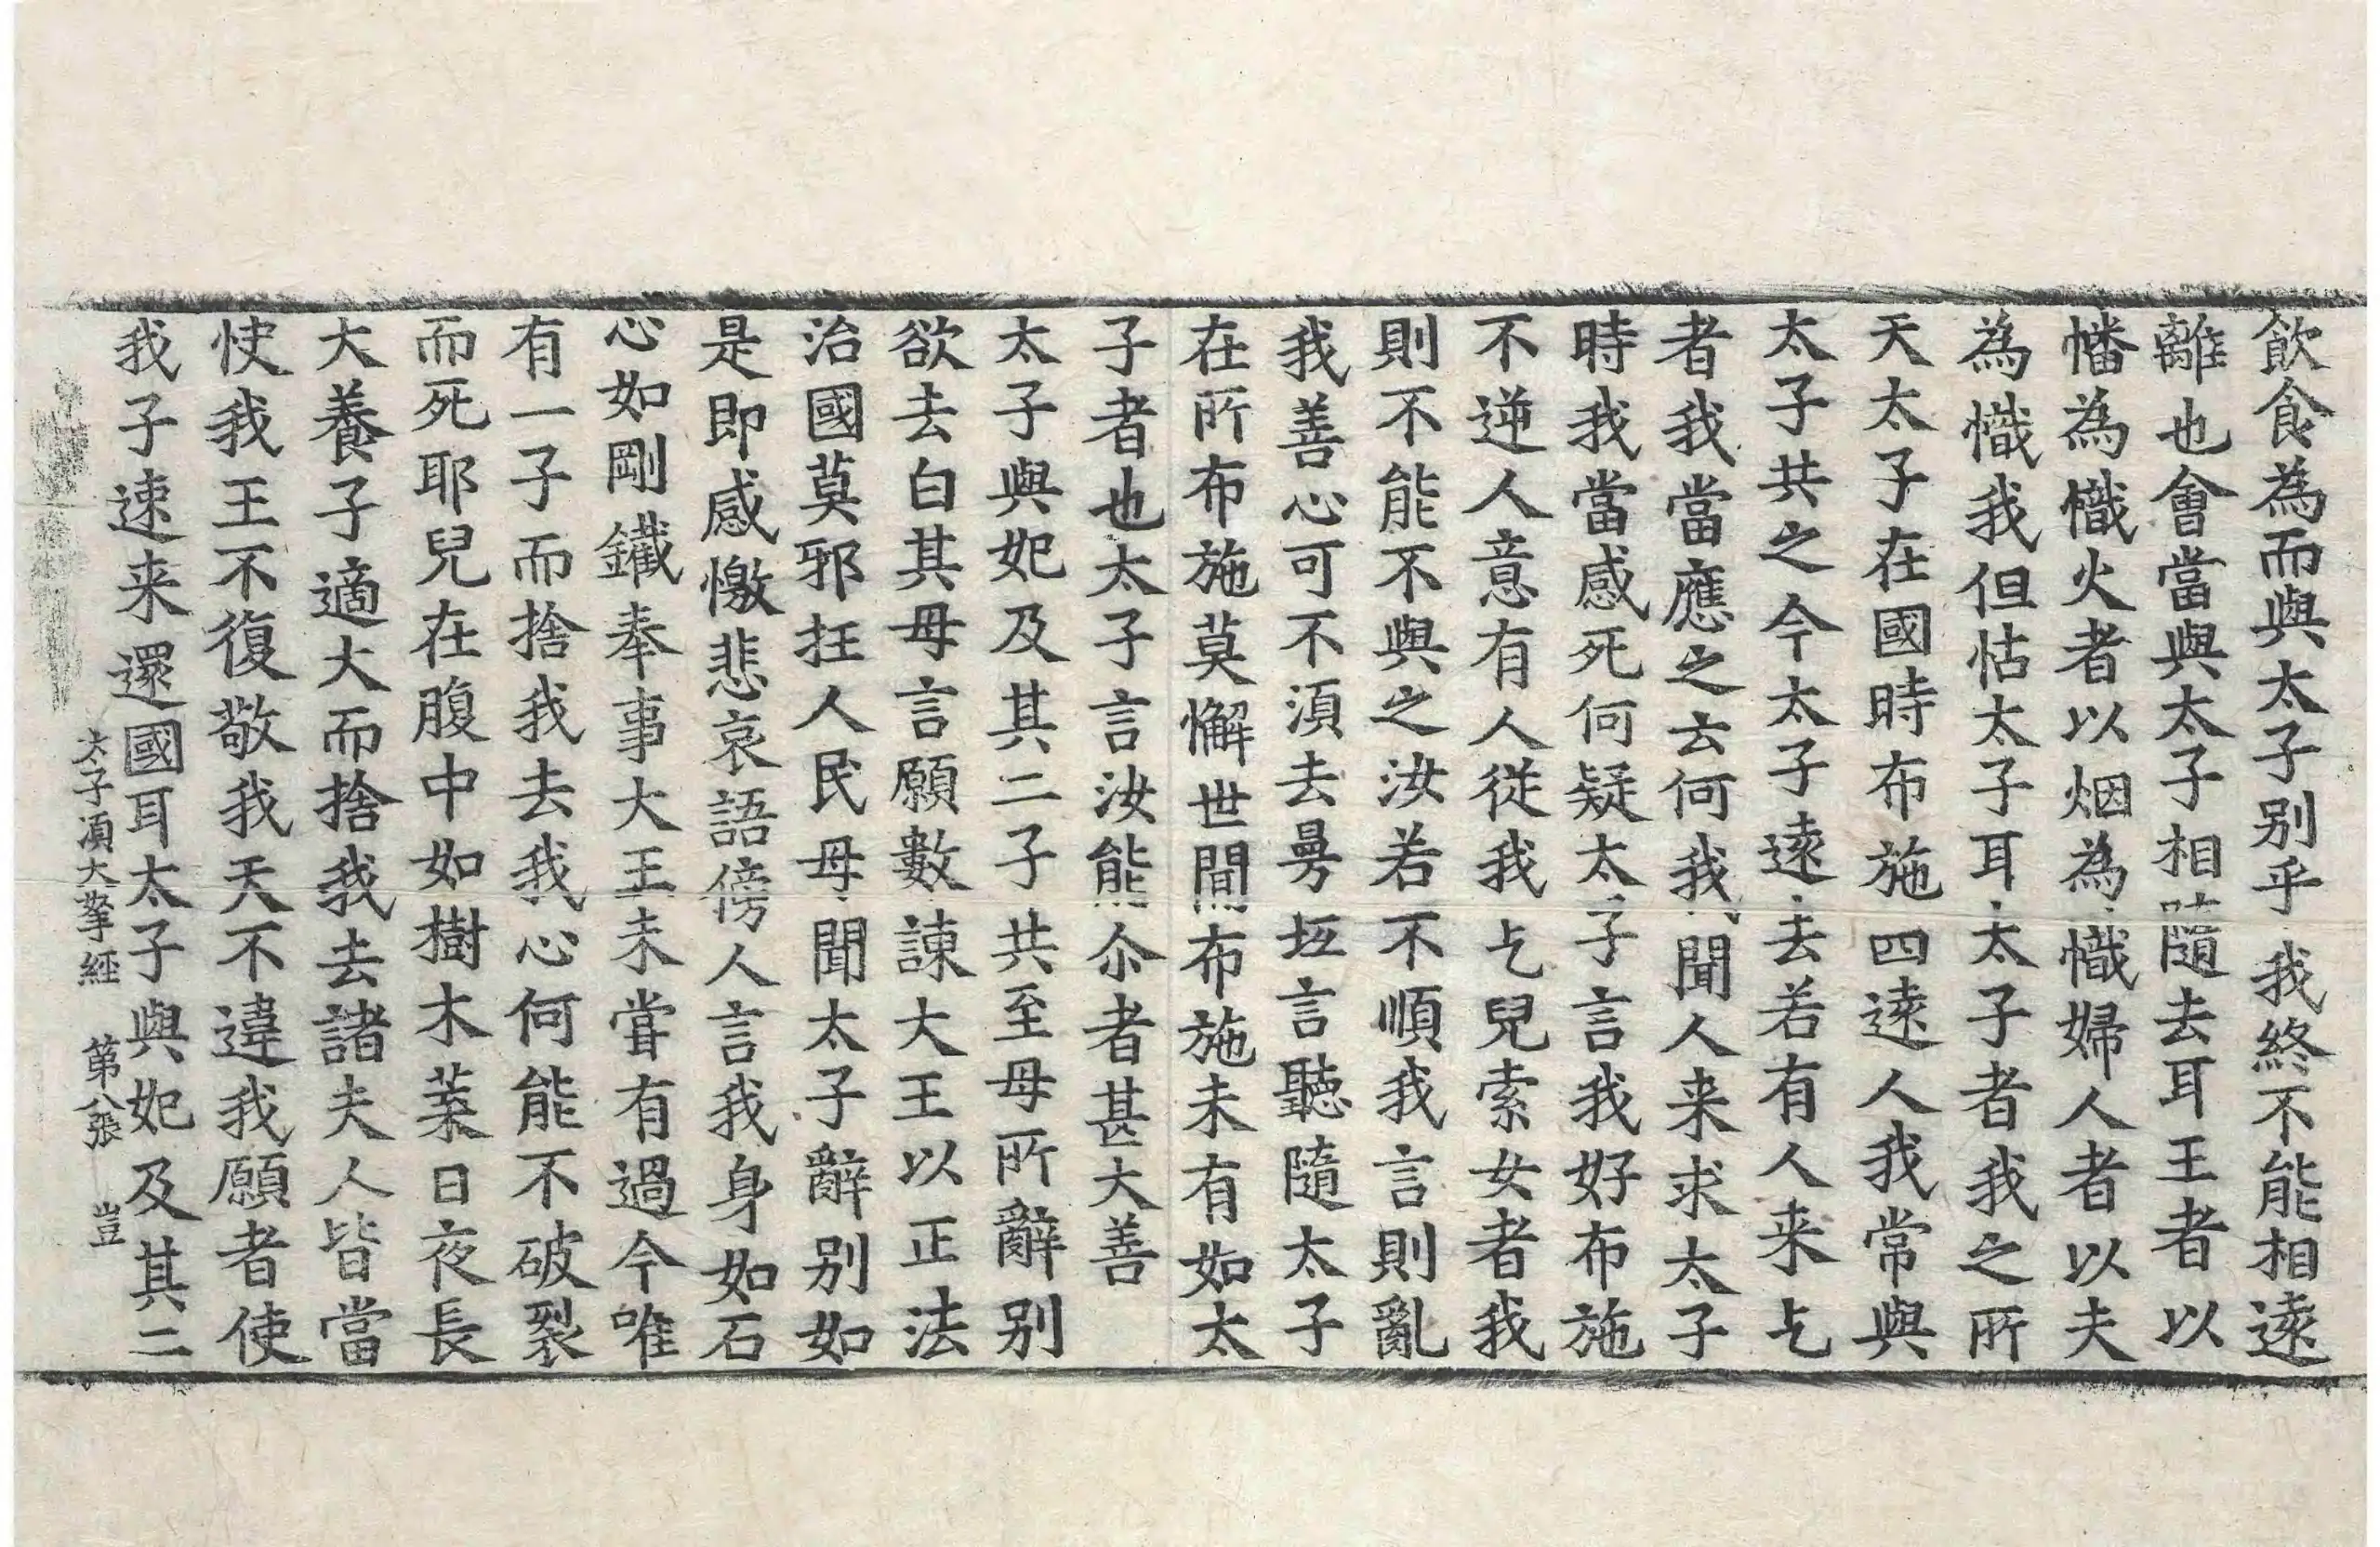 飲食為而與太子別乎我終不能相遠
離也會當與太子相隨去耳王者以
幡為幟火者以烟為幟婦人者以夫
為幟我但怙太子耳太子者我之所
天太子在國時布施四遠人我常與
太子共之今太子遠去若有人来乞
者我當應之云何我聞人来求太子
時我當感死何疑太子言我好布施
不逆人意有人從我乞兒索女者我
則不能不與之汝若不順我言則亂
我善心可不湏去曼坻言聽隨太子
在所布施莫懈世間布施未有如太
子者也太子言汝能尒者甚大善
太子與妃及其二子共至母所辭別
欲去白其母言願數諫大王以正法
治國莫邪抂人民母聞太子辭別如
是即感懰悲哀語傍人言我身如石
心如剛鐵奉事大王未甞有過今唯
有一子而捨我去我心何能不破裂
而死耶兒在腹中如樹木葉日夜長
大養子適大而捨我去諸夫人皆當
快我王不復敬我天不違我願者使
我子速来還國耳太子與妃及其二
太子湏大拏経　第八張　豈